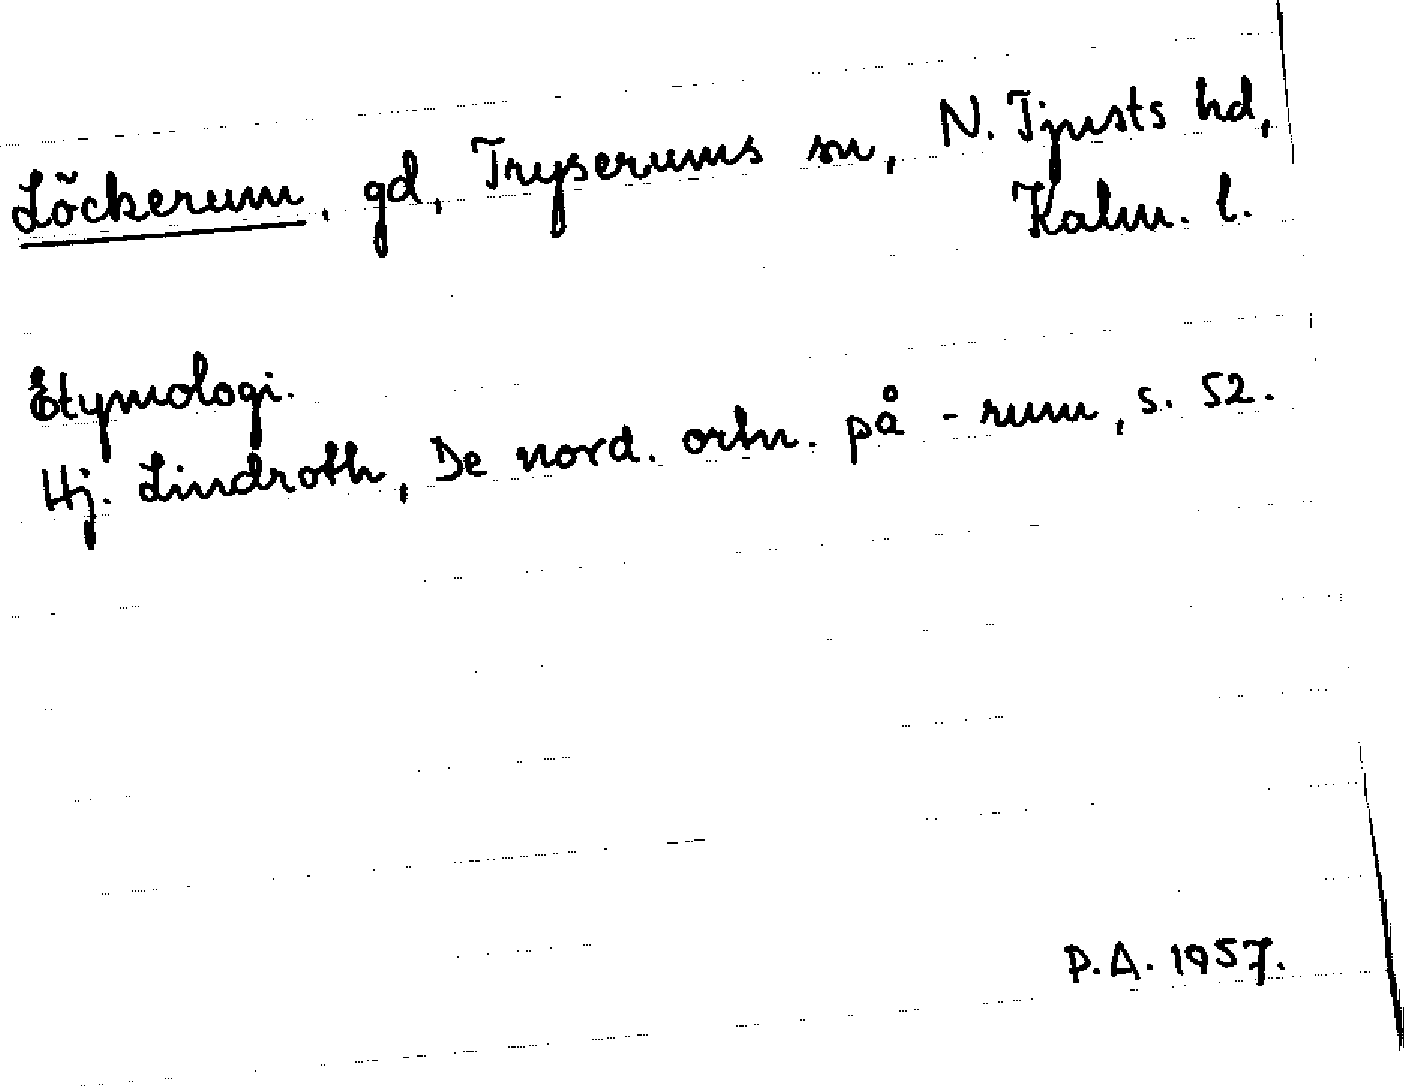 Löckerum, gd, Tryserums sn, N. Tjusts hd,
Kalm. l.
Etymologi.
Hj. Lindroth, De nord. ortn. på -rum, s. 52.
P.A. 1957.